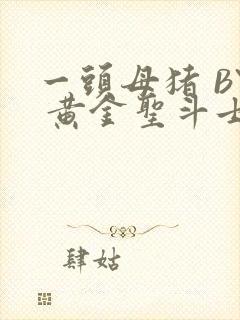 一頭母猪 BY
黄金聖斗士
肆姑